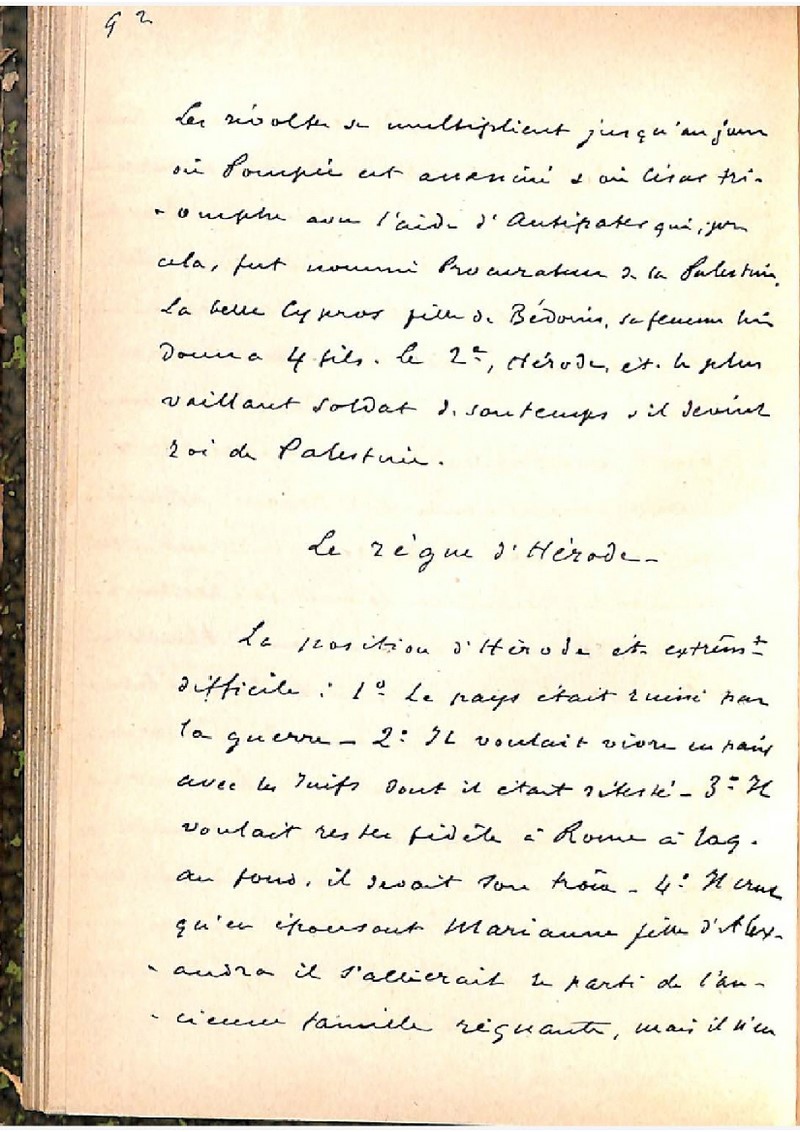 92
Les révoltes se multiplient jusqu'au jour
où Pompée est assassiné & où César tri-
omphe avec l'aide d'Antipater qui, pour
cela, fut nommé Procurateur de la Palestine.
La belle Cypros fille de Bédouin, sa femme lui
donna 4 fils. Le 2e, Hérode, ét. le plus
vaillant soldat de son temps & il devint
roi de Palestine.
Le règne d'Hérode -
La position d'Hérode ét. extrêmt
difficile : 1º Le pays était ruiné par
la guerre - 2º Il voulait vivre en paix
avec les Juifs dont il était détesté - 3º Il
voulait rester fidèle à Rome à laq.
au fond, il devait son trône - 4º Il crut
qu'en épousant Marianne fille d'Alex-
andra il s'allierait le parti de l'an-
cienne famille régnante, mais il n'en